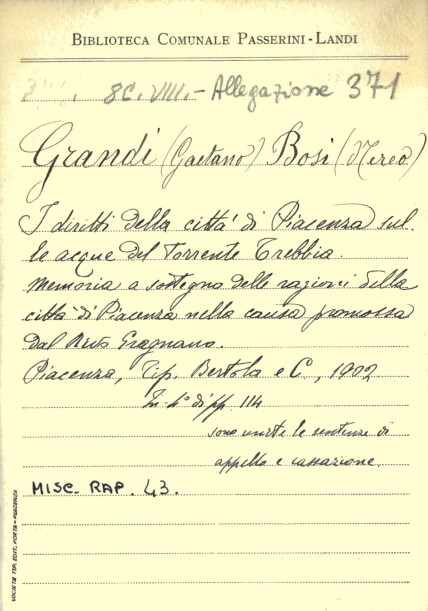 BIBLIOTECA COMUNALE PASSERINI-LANDI
8C. VIII.- Allegazione 371
Grandi (Gaetano) Bosi (Nereo)
I diritti della città di Piacenza sul-
le acque del Torrente Trebbia.
Memoria a sostegno delle ragioni della
città di Piacenza nella causa promossa
dal Rivo Gragnano.
Piacenza, Tip. Bertola e C., 1902
In-4° di pp. 114
sono unite le sentenze di
appello e cassazione.
MISC. RAP. 43.
SOCIETÀ TIP. EDIT. PORTA-PIACENZA